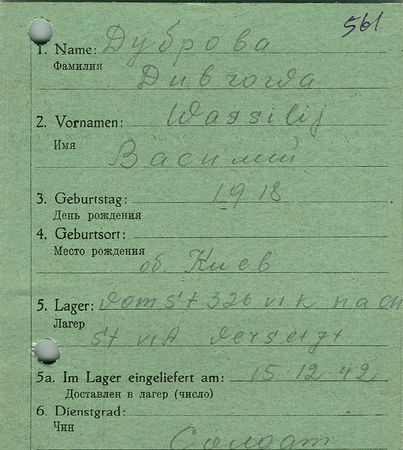 561
1. Name: Дуброва
Фамилия
2. Vornamen: Wassilij
Имя
Василий
3. Geburtstag: 1918
День рождения
4. Geburtsort:
Место рождения
об. Киев
5. Lager: vom St 326 VI K nach
Лагер
St VI A versetzt
5a. Im Lager eingeliefert am: 15.12.42
Доставлен в лагер (число)
6. Dienstgrad:
Чин
Солдат